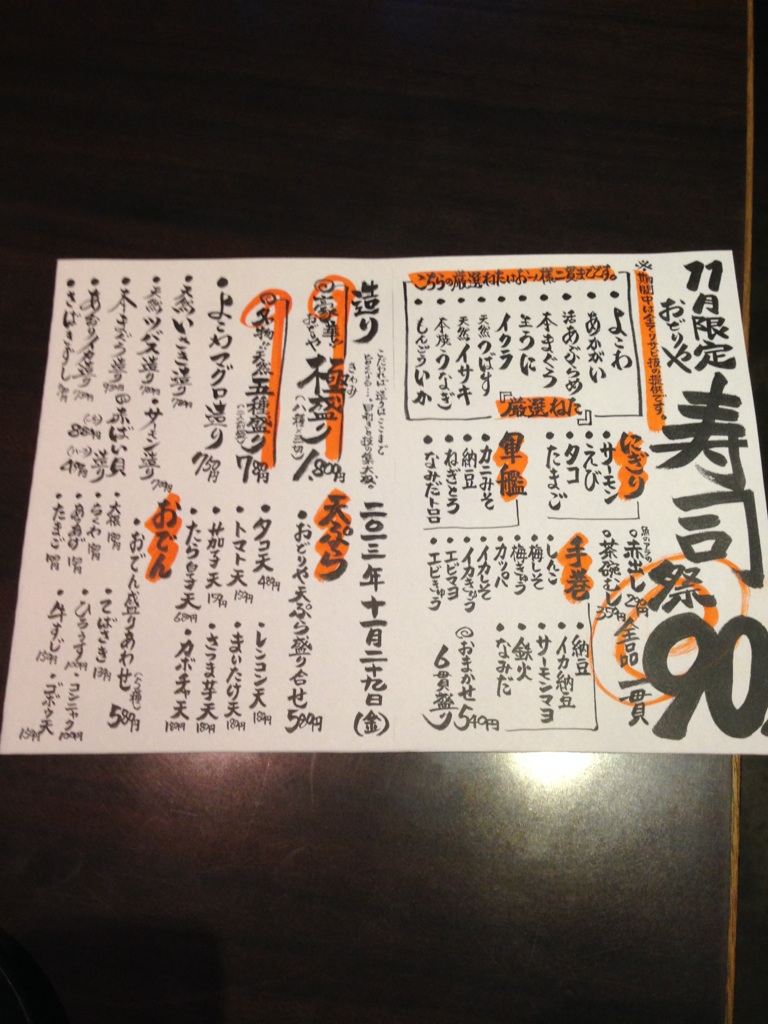 11月限定
おどりや
寿司祭
90
全品一貫
※期間中は全てサビ抜の提供です。
こちらの厳選ねたはお一人様二貫までです。
『厳選ねた』
・よこわ
・あかがい
・活あぶらめ
・本まぐろ
・生うに
・イクラ
・天然つばす
・天然イサキ
・うなぎ
・しんこういか
・赤出し
・茶碗むし
にぎり
・サーモン
・えび
・タコ
・たまご
軍艦
・カニみそ
・納豆
・ねぎとろ
・なみだトロ
手巻
・しんこ
・梅しそ
・梅きゅう
・カッパ
・イカしそ
・イカきゅう
・エビマヨ
・エビきゅう
・納豆
・イカ納豆
・サーモンマヨ
・鉄火
・なみだ
◎おまかせ
6貫盛り 540円
二〇一三年十一月二十九日(金)
造り
◎豪華!おどりや極盛り(八種・三切) 1,890円
◎名物!天然五種盛り 789円
・よこわマグロ造り
・天然いさき造り
・天然ツバス造り
・サーモン造り
・本まぐろ造り
・赤ばい貝造り
・あおりイカ造り
・きずし
天ぷら
・おどりや天ぷら盛り合せ 580円
・タコ天
・トマト天
・茄子天
・たら白子天
・レンコン天
・まいたけ天
・さつま芋天
・カボチャ天
おでん
・おでん盛りあわせ 580円
・大根
・ちくわ
・あつあげ
・たまご
・てばさき
・ひろうす
・コンニャク
・牛すじ
・ゴボウ天